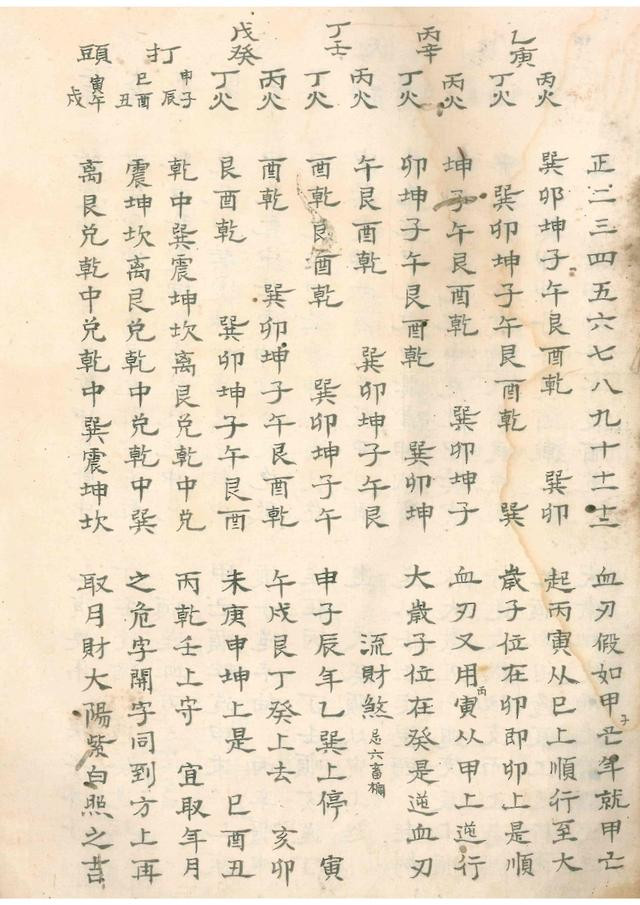 正二三四五六七八九十十一十二
乙寅
丙火 巽卯坤子午艮酉乾 巽卯
丁火 巽卯坤子午艮酉乾 巽
丙辛
丙火 坤子午艮酉乾 巽卯坤子
丁火 卯坤子午艮酉乾 巽卯坤
丁壬
丙火 午艮酉乾 巽卯坤子午艮
丁火 酉乾艮酉乾 巽卯坤子午
戊癸
丙火 酉乾 巽卯坤子午艮酉乾
丁火 艮酉乾 巽卯坤子午艮酉
打頭
申子辰 乾中巽震坤坎离艮兑乾中兑
巳酉丑 震坤坎离艮兑乾中兑乾中巽
寅午戌 离艮兑乾中兑乾中巽震坤坎
血刃假如甲子亡年就甲亡
起丙寅从巳上順行至大
歲子位在卯即卯上是順
血刃又用丙寅从甲上逆行
大歲子位在癸是逆血刃
流財煞 忌六畜欄
申子辰年乙巽上停 寅
午戌艮丁癸上去 亥卯
未庚申坤上是 巳酉丑
丙乾壬上守 宜取年月
之危字開字同到方上再
取月財大陽紫白照之吉